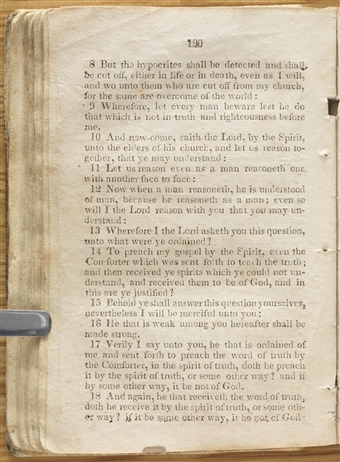 120
8 But the hypocrites shall be detected and shall
be cut off, either in life or in death, even as I will,
and wo unto them who are cut off from my church,
for the same are overcome of the world:
9 Wherefore, let every man beware lest he do
that which is not in truth and righteousness before
me.
10 And now come, saith the Lord, by the Spirit,
unto the elders of his church, and let us reason to-
gether, that ye may understand:
11 Let us reason even as a man reasoneth one
with another face to face:
12 Now when a man reasoneth, he is understood
of man, because he reasoneth as a man; even so
will I the Lord reason with you that you may un-
derstand:
13 Wherefore I the Lord asketh you this question,
unto what were ye ordained?
14 To preach my gospel by the Spirit, even the
Comforter which was sent forth to teach the truth;
and then received ye spirits which ye could not un-
derstand, and received them to be of God, and in
this are ye justified?
15 Behold ye shall answer this question yourselves,
nevertheless I will be merciful unto you:
16 He that is weak among you hereafter shall be
made strong.
17 Verily I say unto you, he that is ordained of
me and sent forth to preach the word of truth by
the Comforter, in the spirit of truth, doth he preach
it by the spirit of truth, or some other way? and if
by some other way, it be not of God.
18 And again, he that receiveth the word of truth,
doth he receive it by the spirit of truth, or some oth-
er way? if it be some other way, it be not of God: